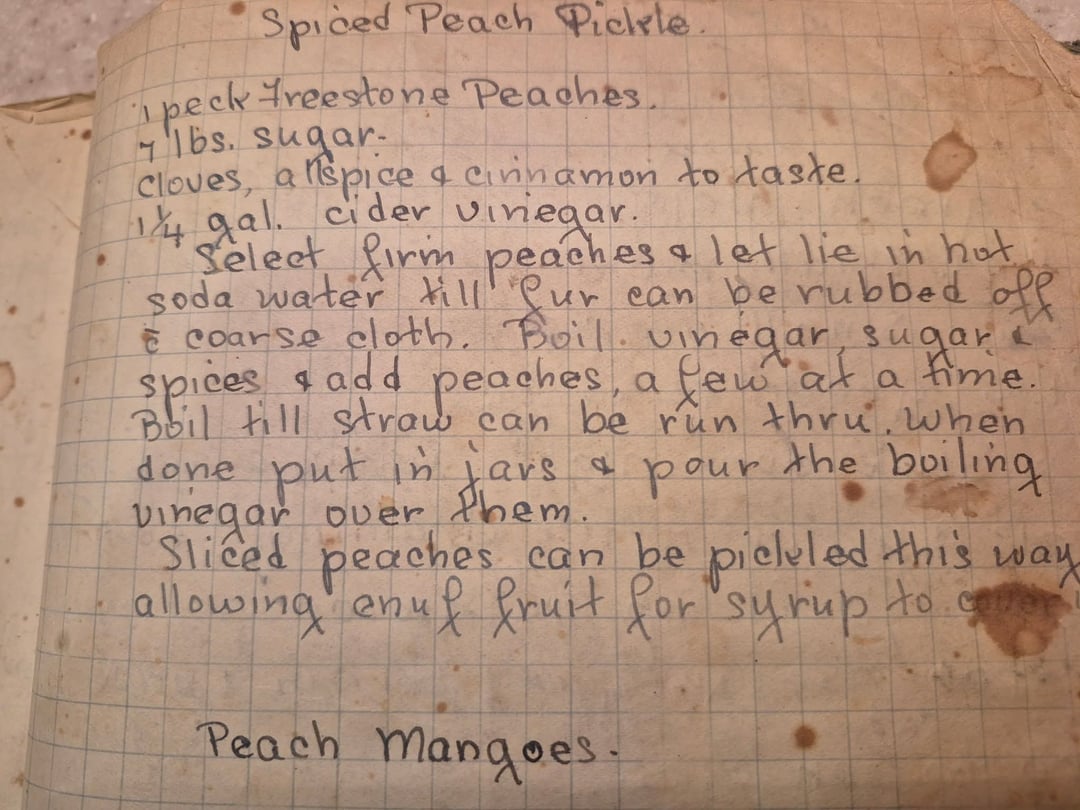 Spiced Peach Pickle.
1 peck Freestone Peaches.
7 lbs. sugar.
Cloves, allspice & cinnamon to taste.
1 1/4 gal. cider vinegar.
Select firm peaches & let lie in hot
soda water till fur can be rubbed off
c̄ coarse cloth. Boil vinegar, sugar &
spices & add peaches, a few at a time.
Boil till straw can be run thru. When
done put in jars & pour the boiling
vinegar over them.
Sliced peaches can be pickled this way
allowing enuf fruit for syrup to cover
Peach Mangoes.